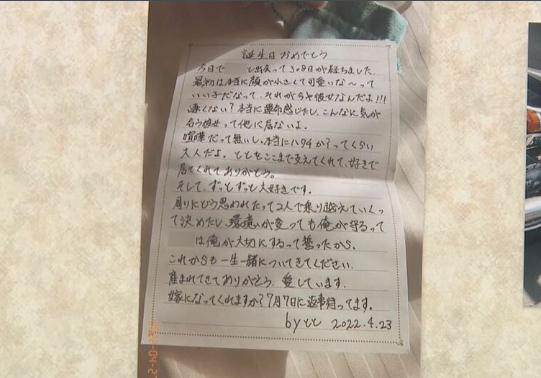 誕生日おめでとう
今日で と出会って308日が経ちました
最初は本当に顔が小さくて可愛いな〜って
いい子だなって、それが今や彼女なんだよ!!!
凄くない?本当に運命感じたし、こんなに気が
合う彼女って他に居ないよ。
喧嘩だって無いし、本当にハタチか?ってくらい
大人だよ。ととをここまで支えてくれて、好きで
居てくれてありがとう。
そして、ずっとずっと大好きです。
周りにどう思われたって2人で乗り越えていくっ
て決めたし、環境が変っても俺が守るって
は俺が大切にするって誓ったから。
これからも一生一緒についてきてください。
産まれてきてありがとう 愛しています。
嫁になってくれますか?7月7日に返事待ってます。
by とと 2022.4.23